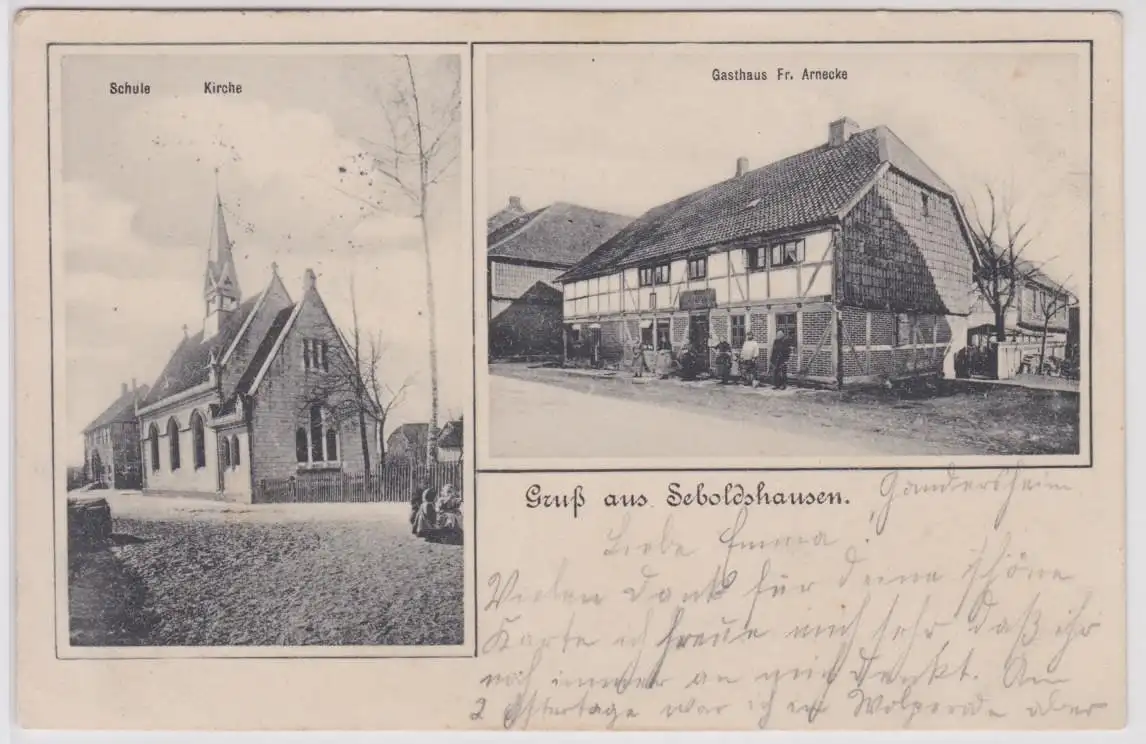 Schule Kirche
Gasthaus Fr. Arnecke
Gruß aus Seboldshausen.
Gandersheim
Liebe Emma
Vielen Dank für deine schöne
Karte ich freue mich sehr daß ihr
noch immer an mich denkt. Am
2 Ostertage war ich in Wolperode aber